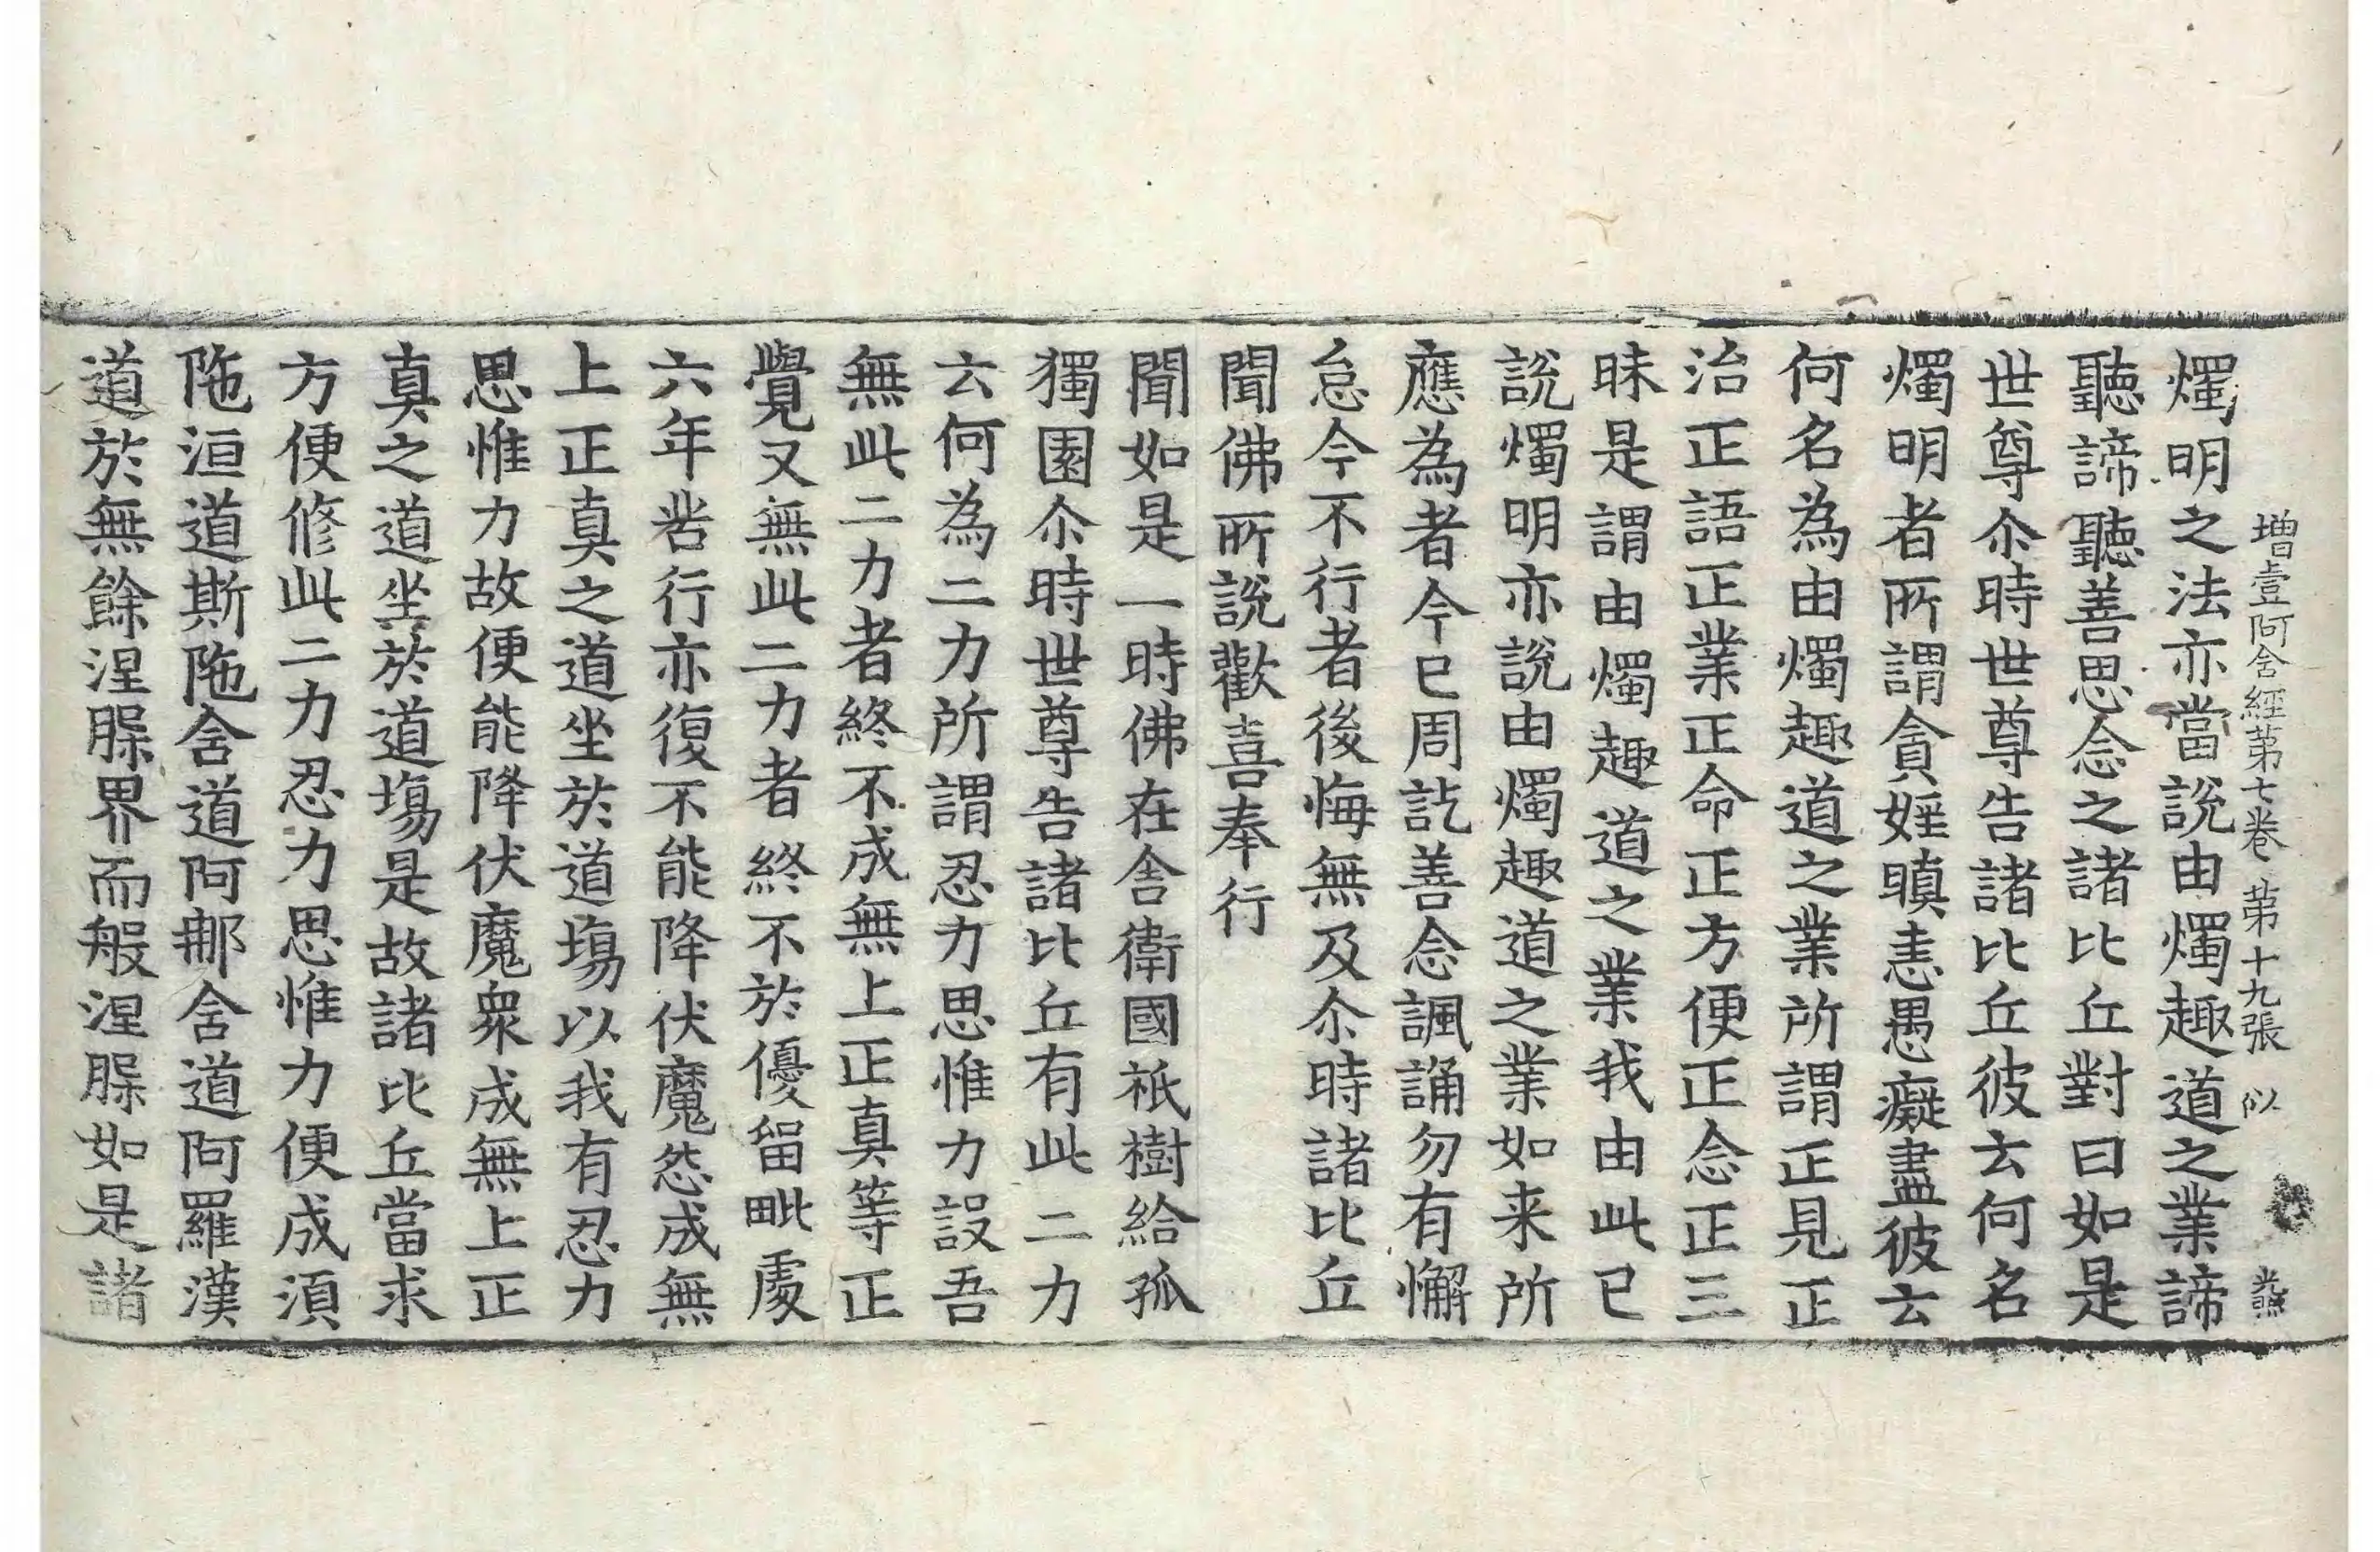 增壹阿含經第七卷 第十九張 似
燭明之法亦當說由燭趣道之業諦
聽諦聽善思念之諸比丘對曰如是
世尊尒時世尊告諸比丘彼云何名
燭明者所謂貪婬瞋恚愚癡盡彼云
何名為由燭趣道之業所謂正見正
治正語正業正命正方便正念正三
昧是謂由燭趣道之業我由此已
說燭明亦說由燭趣道之業如来所
應為者今已周訖善念諷誦勿有懈
怠今不行者後悔無及尒時諸比丘
聞佛所說歡喜奉行
聞如是一時佛在舍衛國祇樹給孤
獨園尒時世尊告諸比丘有此二力
云何為二力所謂忍力思惟力設吾
無此二力者終不成無上正真等正
覺又無此二力者終不於優留毗處
六年苦行亦復不能降伏魔怨成無
上正真之道坐於道塲以我有忍力
思惟力故便能降伏魔衆成無上正
真之道坐於道塲是故諸比丘當求
方便修此二力忍力思惟力便成湏
陁洹道斯陁含道阿那含道阿羅漢
道於無餘涅槃界而般涅槃如是諸